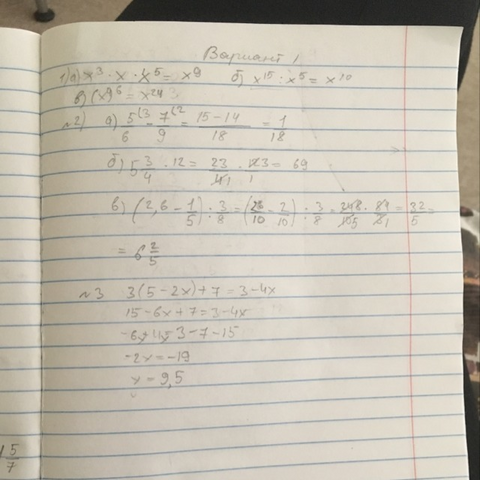 Вариант 1
1) а) x³ · x · x⁵ = x⁹ б) x¹⁵ : x⁵ = x¹⁰
в) = x²⁴
№2) а) 5/6 - 7/9 = (15-14)/18 = 1/18
б) 5 3/4 · 12 = 23/4 · = 69
в) (2,6 - 1/5) : 3/8 = (26/10 - 2/10) : 3/8 = = 32/5 =
= 6 2/5
№3 3(5-2x)+7=3-4x
15-6x+7=3-4x
-6x+4x=3-7-15
-2x=-19
x=9,5
5/7